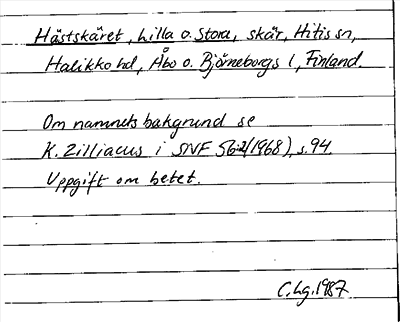 Hästskäret, Lilla o. Stora, skär, Hitis sn,
Halikko hd, Åbo o. Björneborgs l, Finland.
Om namnets bakgrund se
K. Zilliacus i SNF 56:2(1968), s. 94.
Uppgift om betet.
C. Lg. 1987